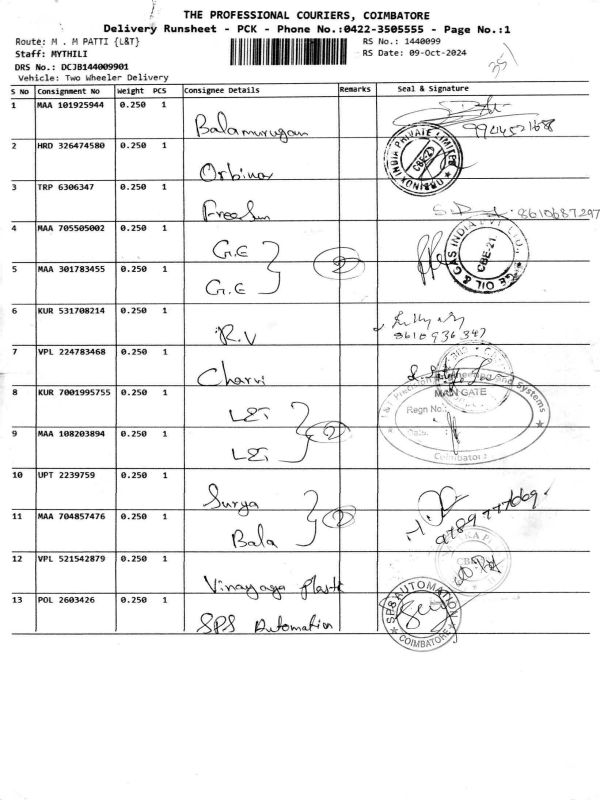 THE PROFESSIONAL COURIERS, COIMBATORE
Delivery Runsheet - PCK - Phone No.:0422-3505555 - Page No.:1
Route: M . M PATTI {L&T} RS No.: 1440099
Staff: MYTHILI RS Date: 09-Oct-2024
DRS No.: DCJB144009901
Vehicle: Two Wheeler Delivery
351
S No Consignment No Weight PCS Consignee Details Remarks Seal & Signature
1 MAA 101925944 0.250 1 Balamurugan
2 HRD 326474580 0.250 1 Orbinox ORBINOX INDIA PRIVATE LIMITED CBE-21
3 TRP 6306347 0.250 1 FreeSun 8610687297
4 MAA 705505002 0.250 1 G.E
5 MAA 301783455 0.250 1 G.E 2 OIL & GAS INDIA PVT LTD., CBE-21
6 KUR 531708214 0.250 1 R.V 8610936347
7 VPL 224783468 0.250 1 Charvi
8 KUR 7001995755 0.250 1 L&T
9 MAA 108203894 0.250 1 L&T 2 L&T Precision Engineering and Systems MAIN GATE Regn No.: Date: Coimbatore
10 UPT 2239759 0.250 1 Surya
11 MAA 704857476 0.250 1 Bala 2 9789777669
12 VPL 521542879 0.250 1 Vinayaga Plastic
13 POL 2603426 0.250 1 SPS Automation SPS AUTOMATION COIMBATORE